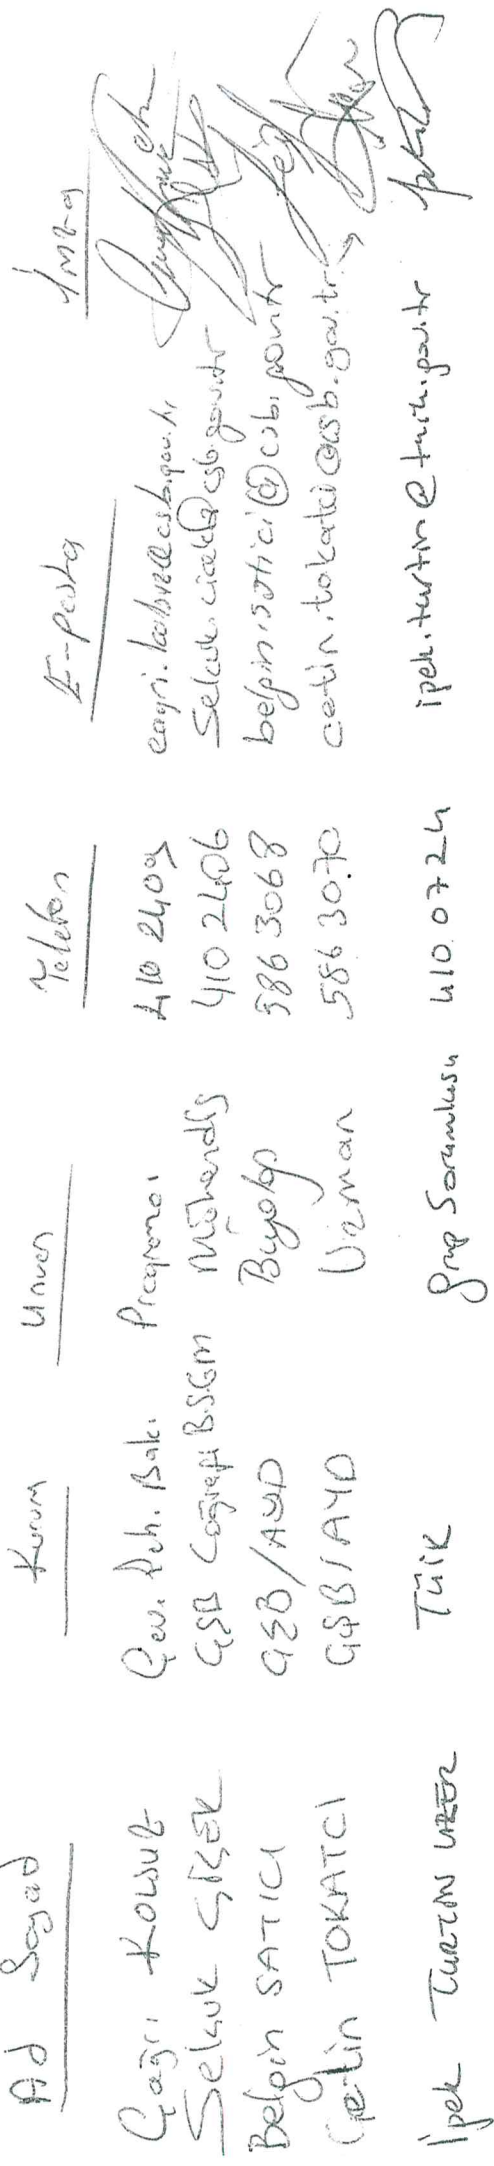 Ad Soyad Kurum Unvan Telefon E-posta İmza
Çağrı Çev. Şeh. Bak. Programcı 410 2409
Selçuk ÇİÇEK ÇŞB Coğrafi B.S.G.M Mühendis 410 2406 selcuk.cicek@csb.gov.tr
Belgin SATICI ÇŞB / Biyolog 586 3068 belgin.satici@csb.gov.tr
Çetin TOKATCI ÇŞB / AYD Uzman 586 30.70 cetin.tokatci@csb.gov.tr
İpek TÜİK Grup Sorumlusu 410 07 24 ipek.turtin@tuik.gov.tr